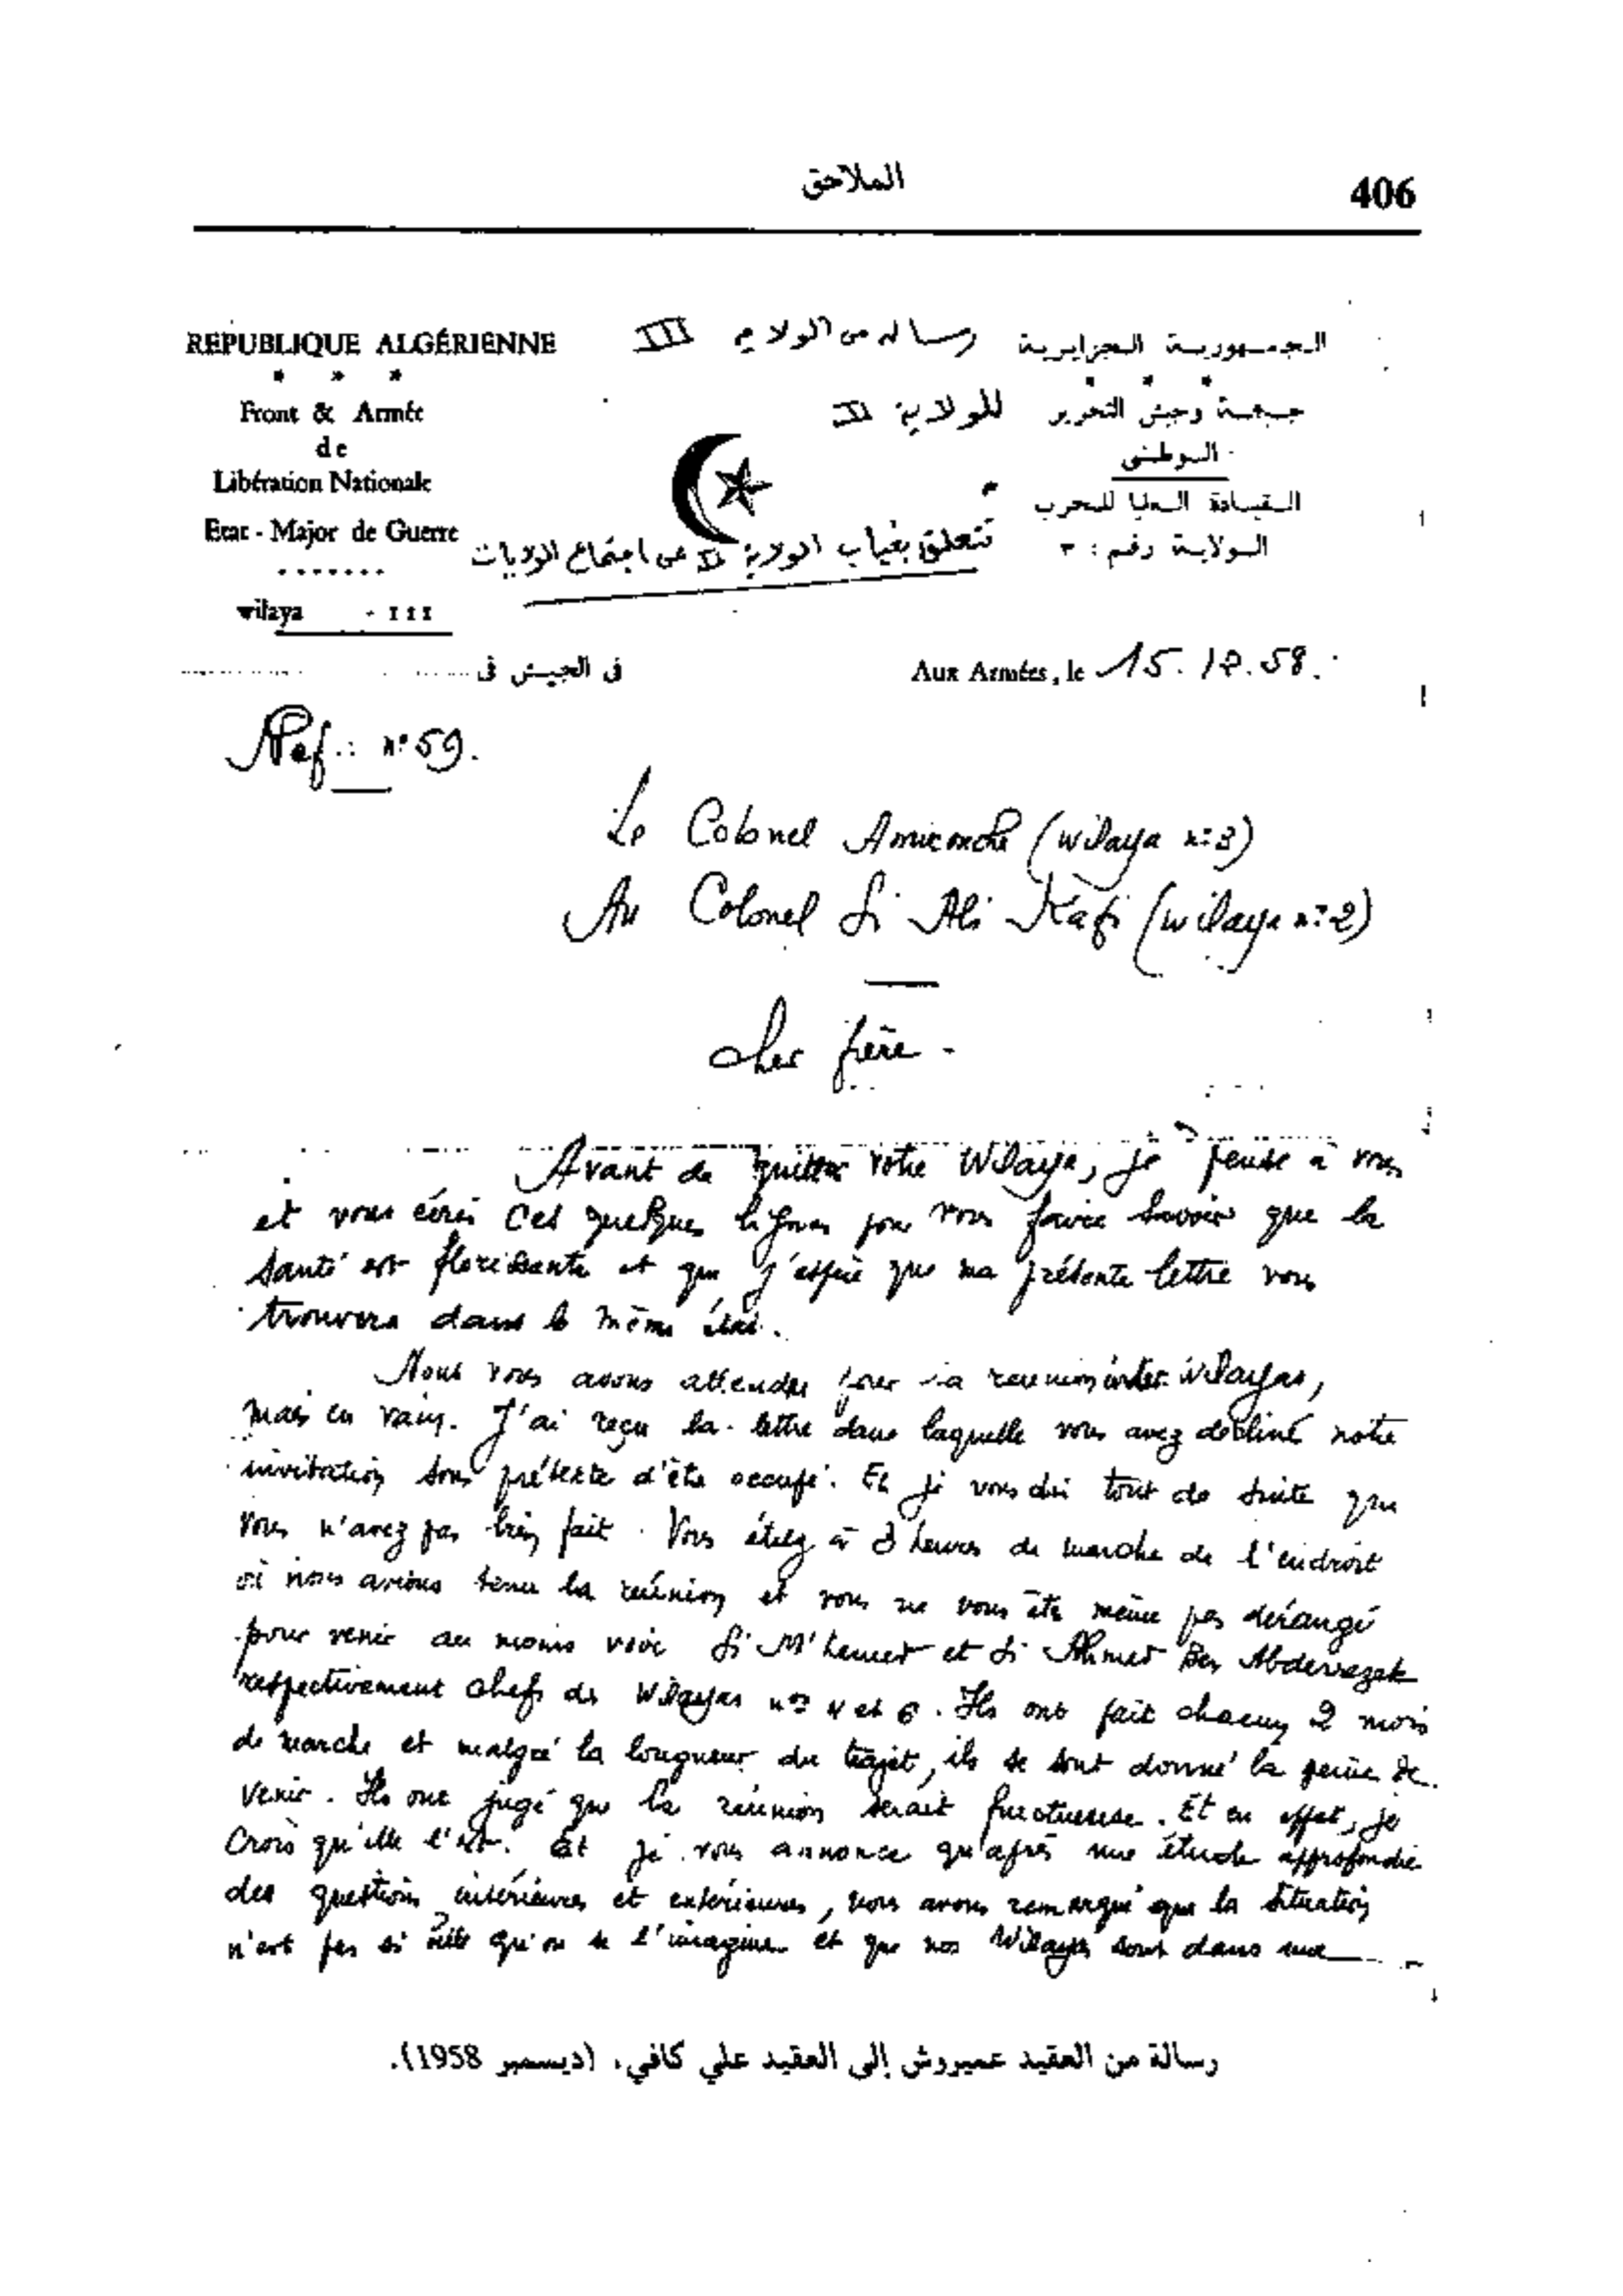 الملاحق
406
REPUBLIQUE ALGÉRIENNE
* * *
Front & Armée
de
Libération Nationale
Etat - Major de Guerre
.......
wilaya - III
رسالة من الولاية III
للولاية II
تتعلق بغياب الولاية II عن اجتماع الولايات
الجمهورية الجزايرية
* * *
جبهة وجيش التحرير
الوطني
القيادة العليا للحرب
الولاية رقم : ٣
فى الجيش فى
Aux Armées, le 15.12.58.
Ref : n° 59.
Le Colonel Amirouche (wilaya n° 3)
Au Colonel Si Ali Kafi (wilaya n° 2)
Cher frère -
Avant de quitter votre Wilaya, je pense à vous
et vous écris ces quelques lignes pour vous faire savoir que la
santé est florissante et que j'espère que ma présente lettre vous
trouvera dans le même état.
Nous vous avons attendu pour la réunion inter Wilayas,
mais en vain. J'ai reçu la lettre dans laquelle vous avez décliné notre
invitation sous prétexte d'être occupé. Et je vous dis tout de suite que
vous n'avez pas bien fait. Vous étiez à 3 heures de marche de l'endroit
où nous avions tenu la réunion et vous ne vous êtes même pas dérangé
pour venir au moins voir Si M'hamed et Si Ahmed Ben Abderrezak
respectivement chefs de Wilayas nos 4 et 6. Ils ont fait chacun 2 mois
de marche et malgré la longueur du trajet, ils se sont donné la peine de
venir. Ils ont jugé que la réunion serait fructueuse. Et en effet, je
crois qu'elle l'est. Et je vous annonce qu'après une étude approfondie
des questions intérieures et extérieures, nous avons remarqué que la situation
n'est pas si qu'on se l'imagine et que nos Wilayas sont dans une
رسالة من العقيد عميروش إلى العقيد علي كافي، (ديسمبر 1958).